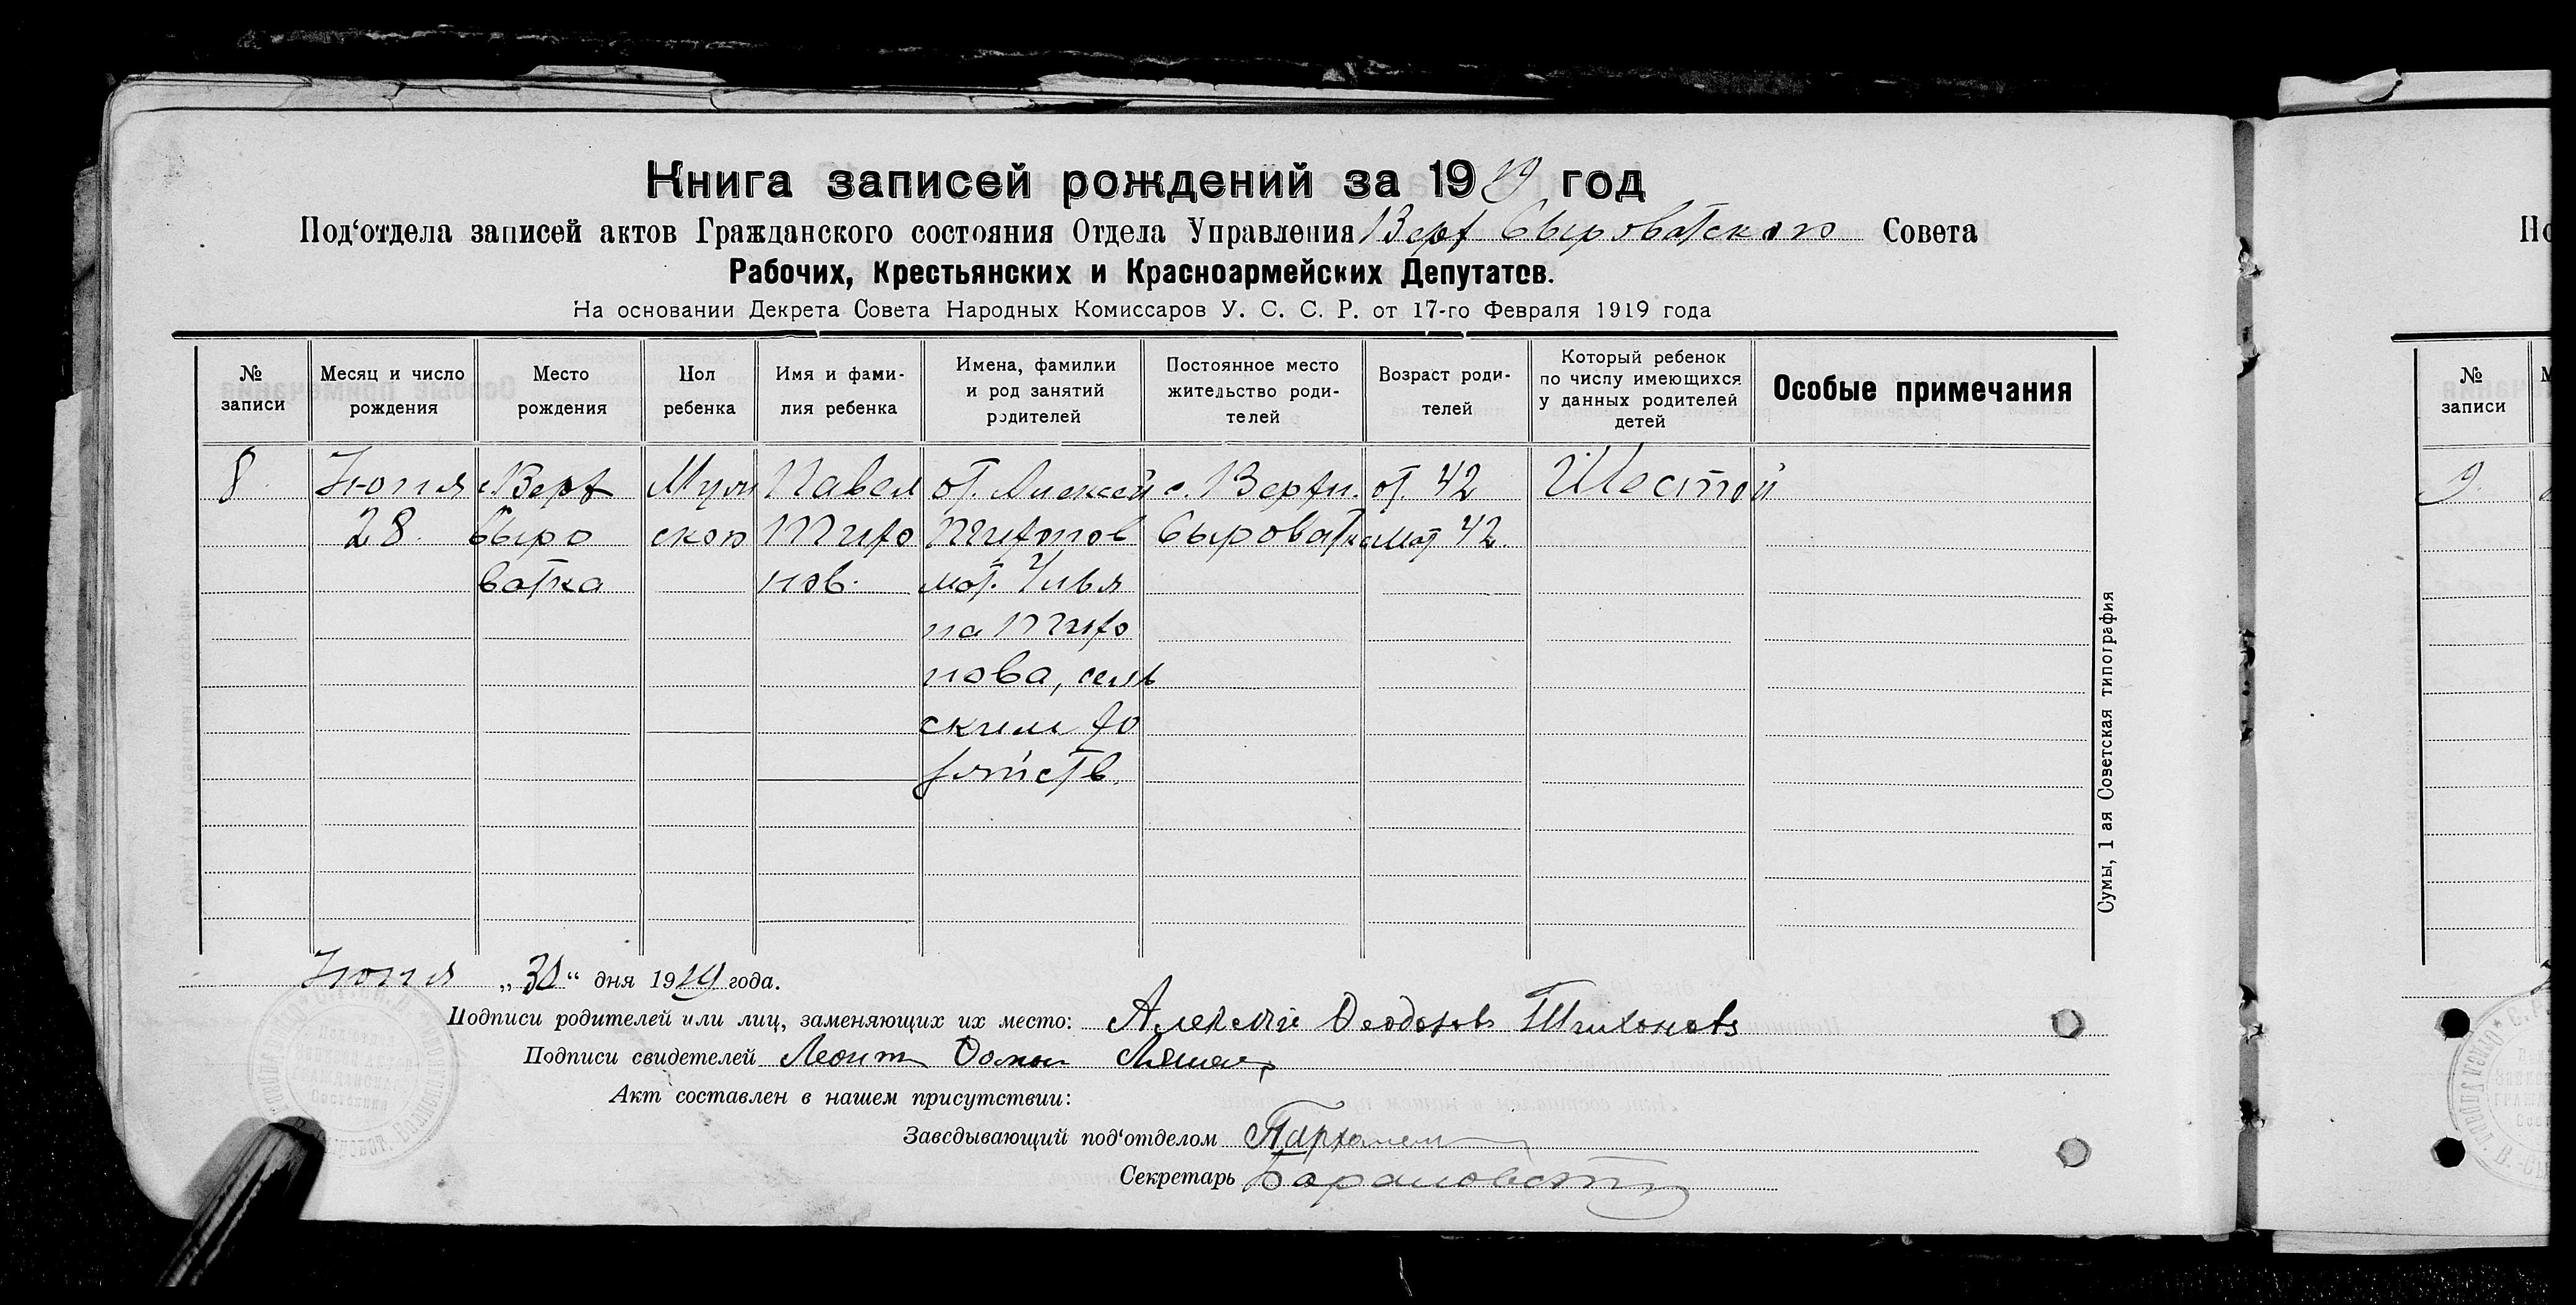 Книга записей рождений за 1919 год
Под‘отдела записей актов Гражданского состояния Отдела Управления Верх Сыроватского Совета
Рабочих, Крестьянских и Красноармейских Депутатов.
На основании Декрета Совета Народных Комиссаров У. С. С. Р. от 17-го Февраля 1919 года
№ записи
Месяц и число рождения
Место рождения
Пол ребенка
Имя и фами-
лия ребенка
Имена, фамилии
и род занятий
родителей
Постоянное место
жительство роди-
телей
Возраст роди-
телей
Который ребенок
по числу имеющихся
у данных родителей
детей
Особые примечания
8. Июня с. Верх Муж Павел от. Алексей с. Верхн. от. 42 Шестой
28. Сыро ской Тихо Тихонов Сыроватка мат 42.
ватка нов. мат. Улья
на Тихо
нова, сель
ским хо
зяйств.
Июня „30“ дня 1919 года.
Подписи родителей или лиц, заменяющих их место: Алексей Феодоров Тихонов
Подписи свидетелей
Акт составлен в нашем присутствии:
Заведывающий под‘отделом Пархоменко
Секретарь Барановский
Сумы, 1 ая Советская типография
№
записи
9.